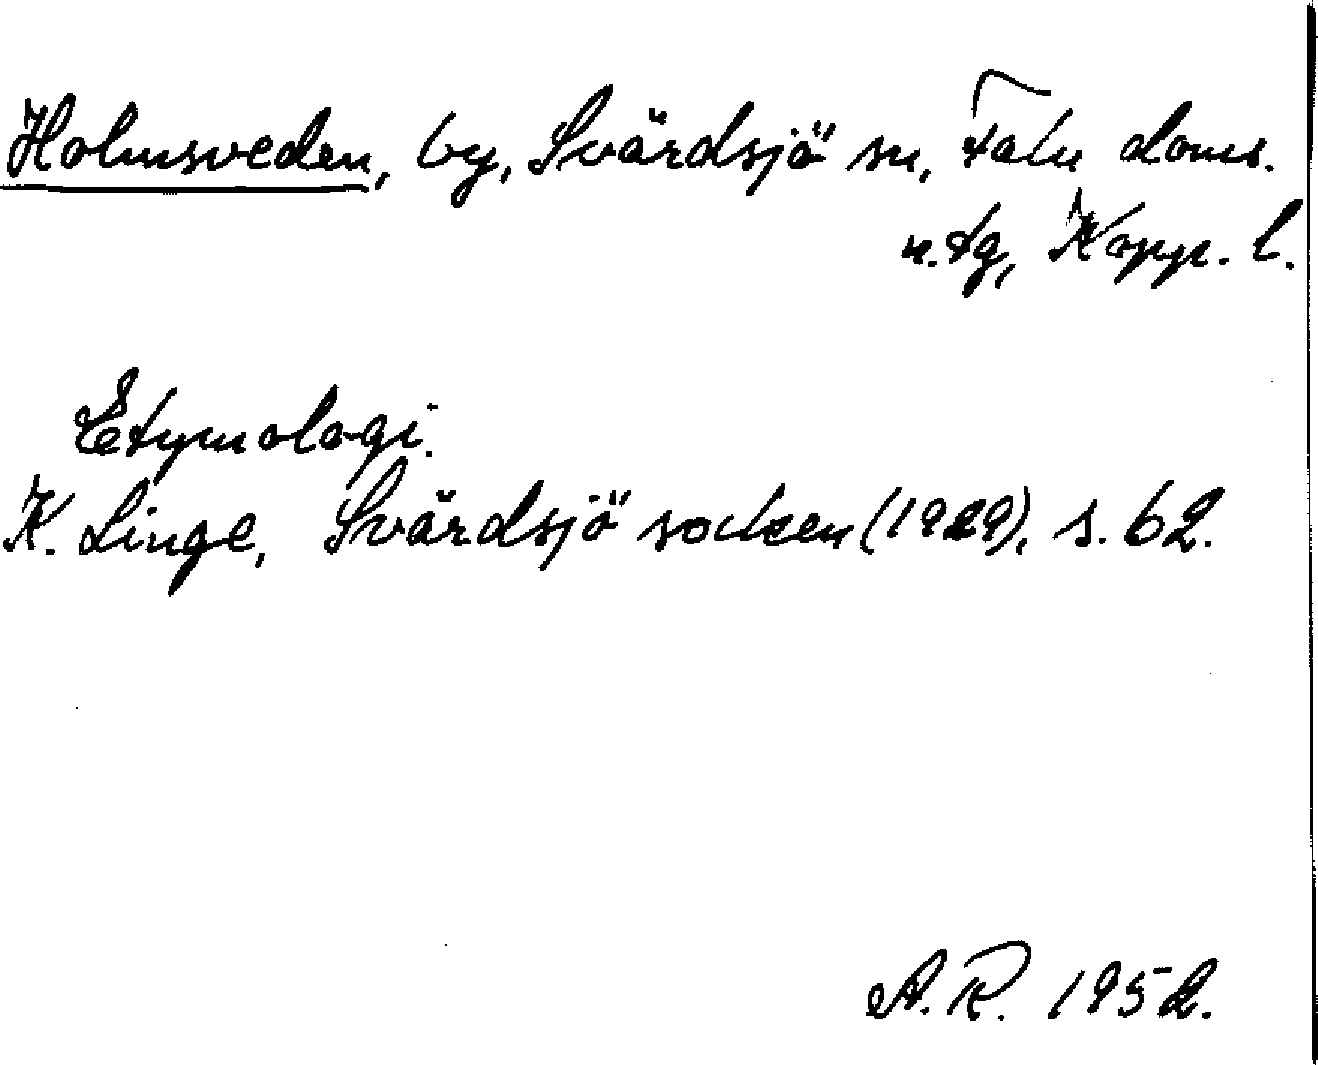 Holmsveden, by, Svärdsjö sn, Falu doms.
n. tg, Kopp. l.
Etymologi.
K. Linge, Svärdsjö socken (1929), s. 62.
A. R. 1952.